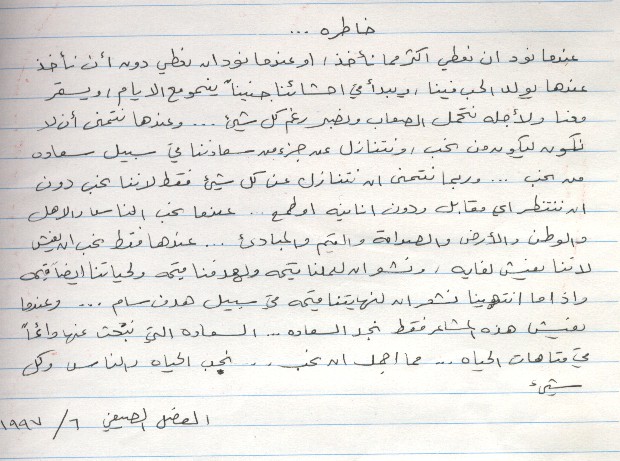 خاطره ...
عندما نود ان نعطي اكثر مما نأخذ، او عندما نود ان نعطي دون أن نأخذ
عندها يولد الحب فينا، ويبدأ في احشائنا جنيناً ينمو مع الايام، ويستقر
معنا ولأجله نتحمل الصعاب ونصبر رغم كل شيئ ... وعندها نتمنى أن لا
نكون ليكون من نحب، ونتنازل عن جزء من سعادتنا في سبيل سعاده
من نحب ... وربما نتمنى ان نتنازل عن كل شيئ فقط لاننا نحب دون
ان ننتظر اي مقابل ودون انانيه او طمع .. عندما نحب الناس والاهل
والوطن والأرض والصداقة والقيم والمبادئ ... عندها فقط نحب ان نعيش
لاننا نعيش لغايه، ونشعر ان لعملنا قيمه ولهدفنا قيمه ولحياتنا ايضا قيمه
واذا ما انتهينا نشعر ان لنهايتنا قيمه في سبيل هدف سام ... وعندما
نعيش هذه المشاعر فقط نجد السعاده ... السعاده التي نبحث عنها دائماً
في متاهات الحياه ... مما اجمل ان نحب .. نحب الحياه والناس وكل
شيئ
الفصل الصيفي ٦/ ١٩٩٧